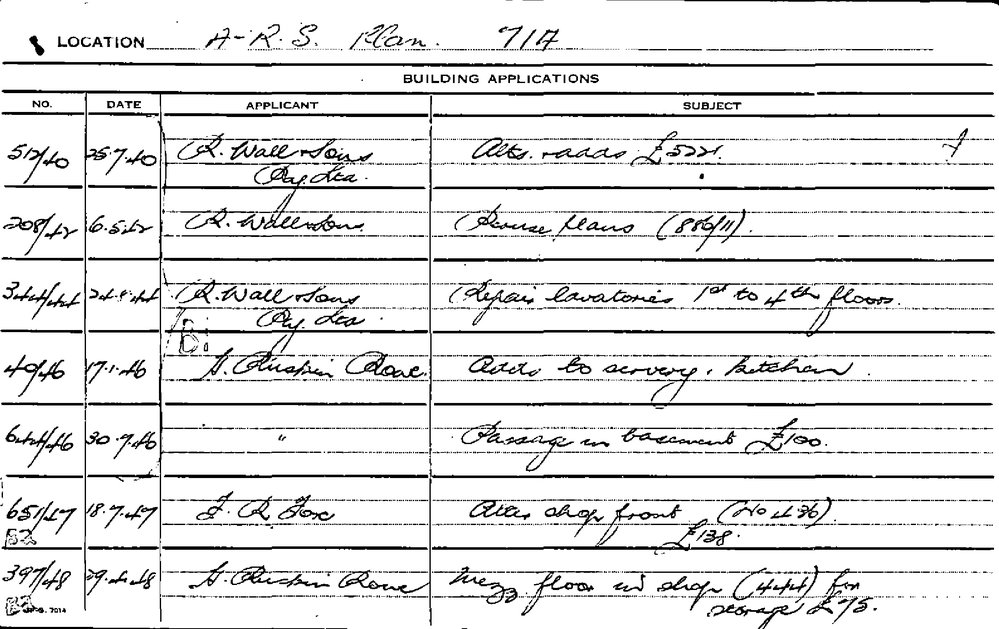 LOCATION A-R.S. Plan. 71A
BUILDING APPLICATIONS
NO. DATE APPLICANT SUBJECT
512/40 25.7.40 R. Wall & Sons Alts. & adds £522.
Pty. Ltd.
208/42 6.5.42 R. Wall & Sons. plans (886/11).
344/44 R. Wall & Sons Repair lavatories 1st to 4th floors.
Pty. Ltd.
40/46 17.1.46 G. Ruskin Rowe. Adds to servery, kitchen.
644/46 30.7.46 " Passage in basement £100.
651/47 18.7.47 F. R. Fox Alter shop front (No 436).
B2 £138.
397/48 29.4.48 G. Ruskin Rowe Mezz floor in shop (444) for
B2 7014 storage £75.